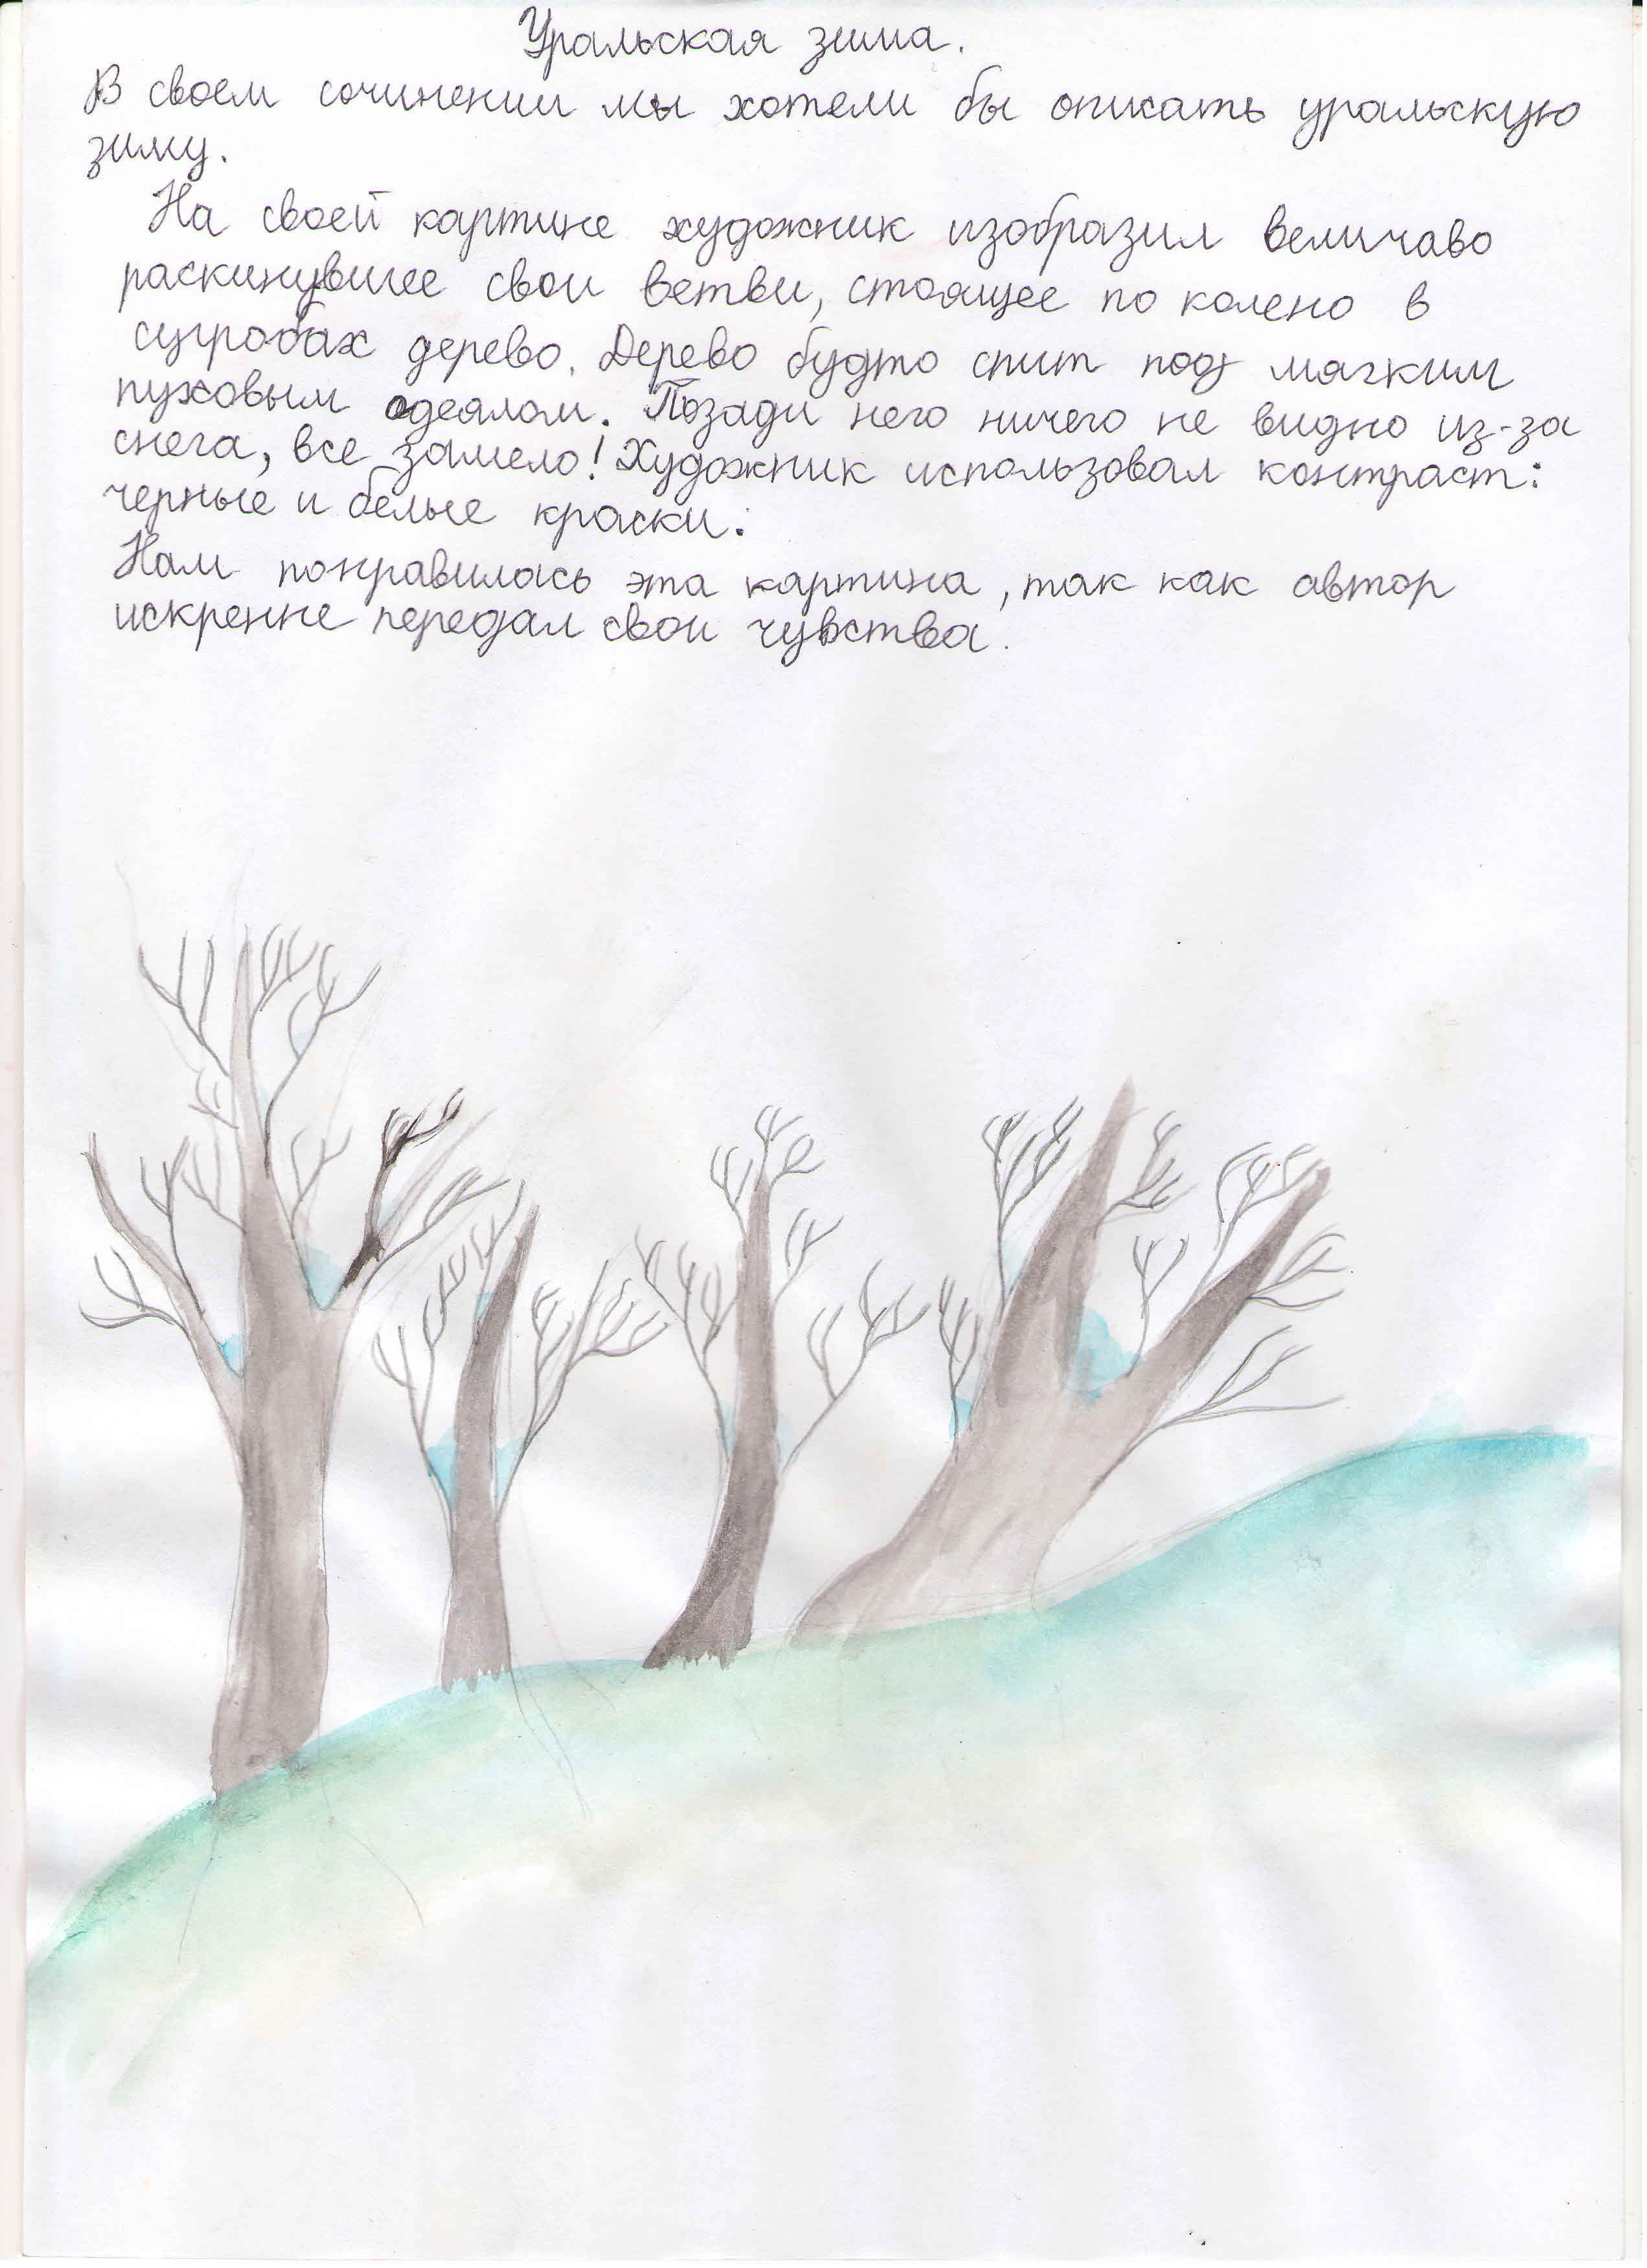 Уральская зима.
В своем сочинении мы хотели бы описать уральскую
зиму.
На своей картине художник изобразил величаво
раскинувшее свои ветви, стоящее по колено в
сугробах дерево. Дерево будто спит под мягким
пуховым одеялом. Позади него ничего не видно из-за
снега, все замело! Художник использовал контраст:
черные и белые краски.
Нам понравилась эта картина, так как автор
искренне передал свои чувства.